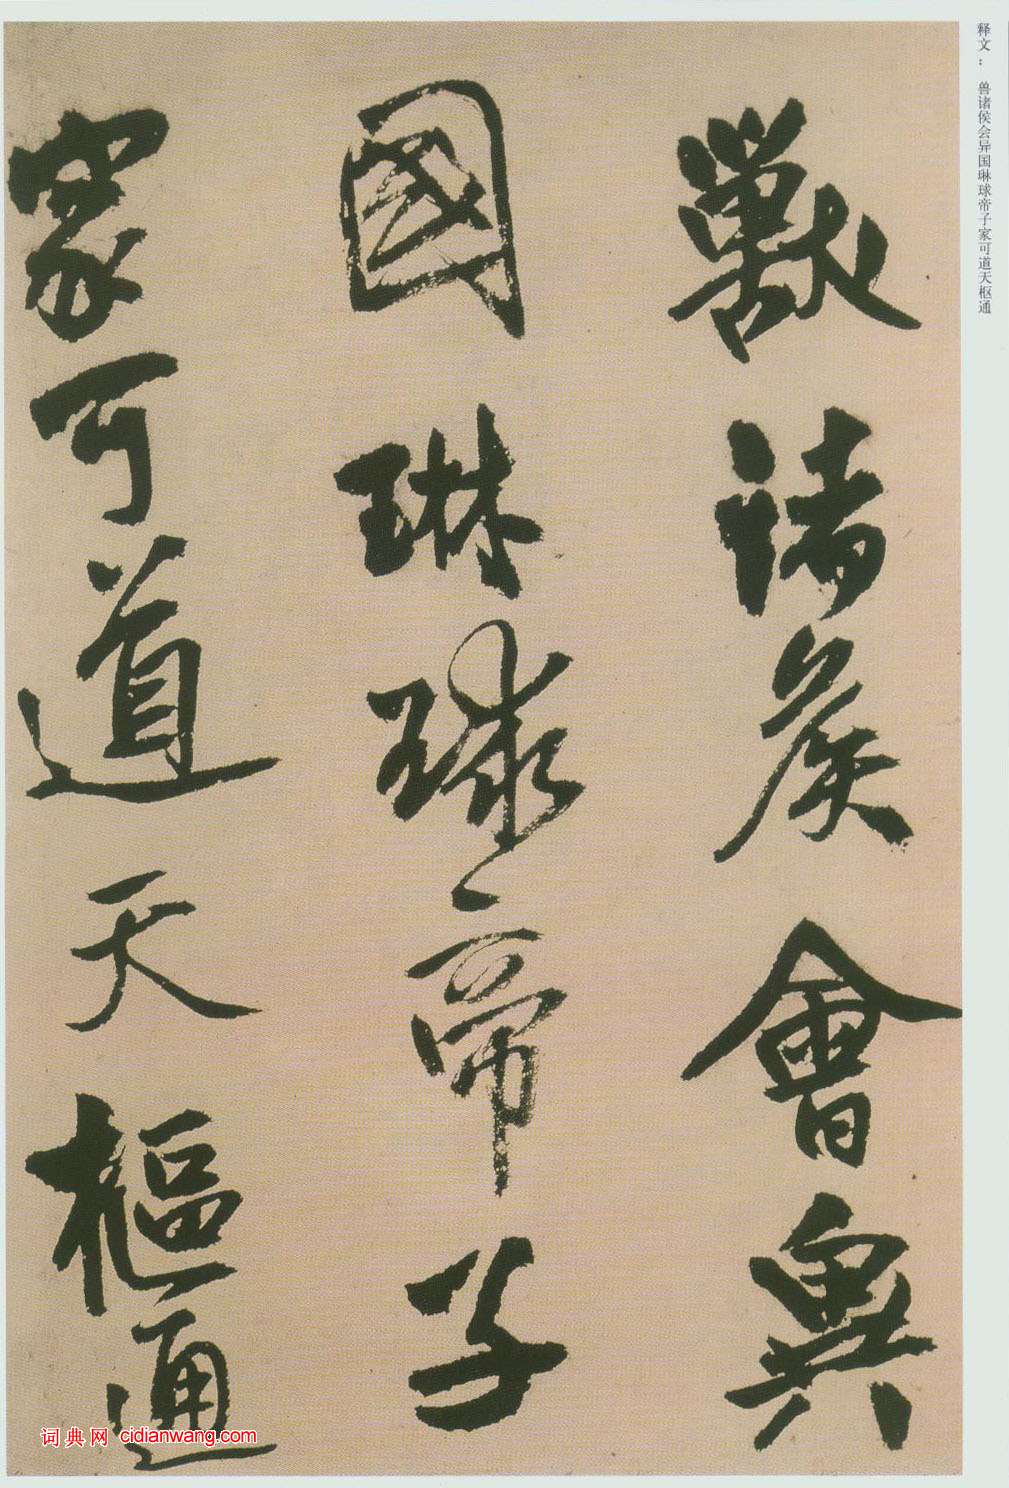 释文： 兽诸侯会异国琳球帝子家可道天枢通
獸諸侯會異
國琳球帝子
家可道天樞通
词典网 cidianwang.com